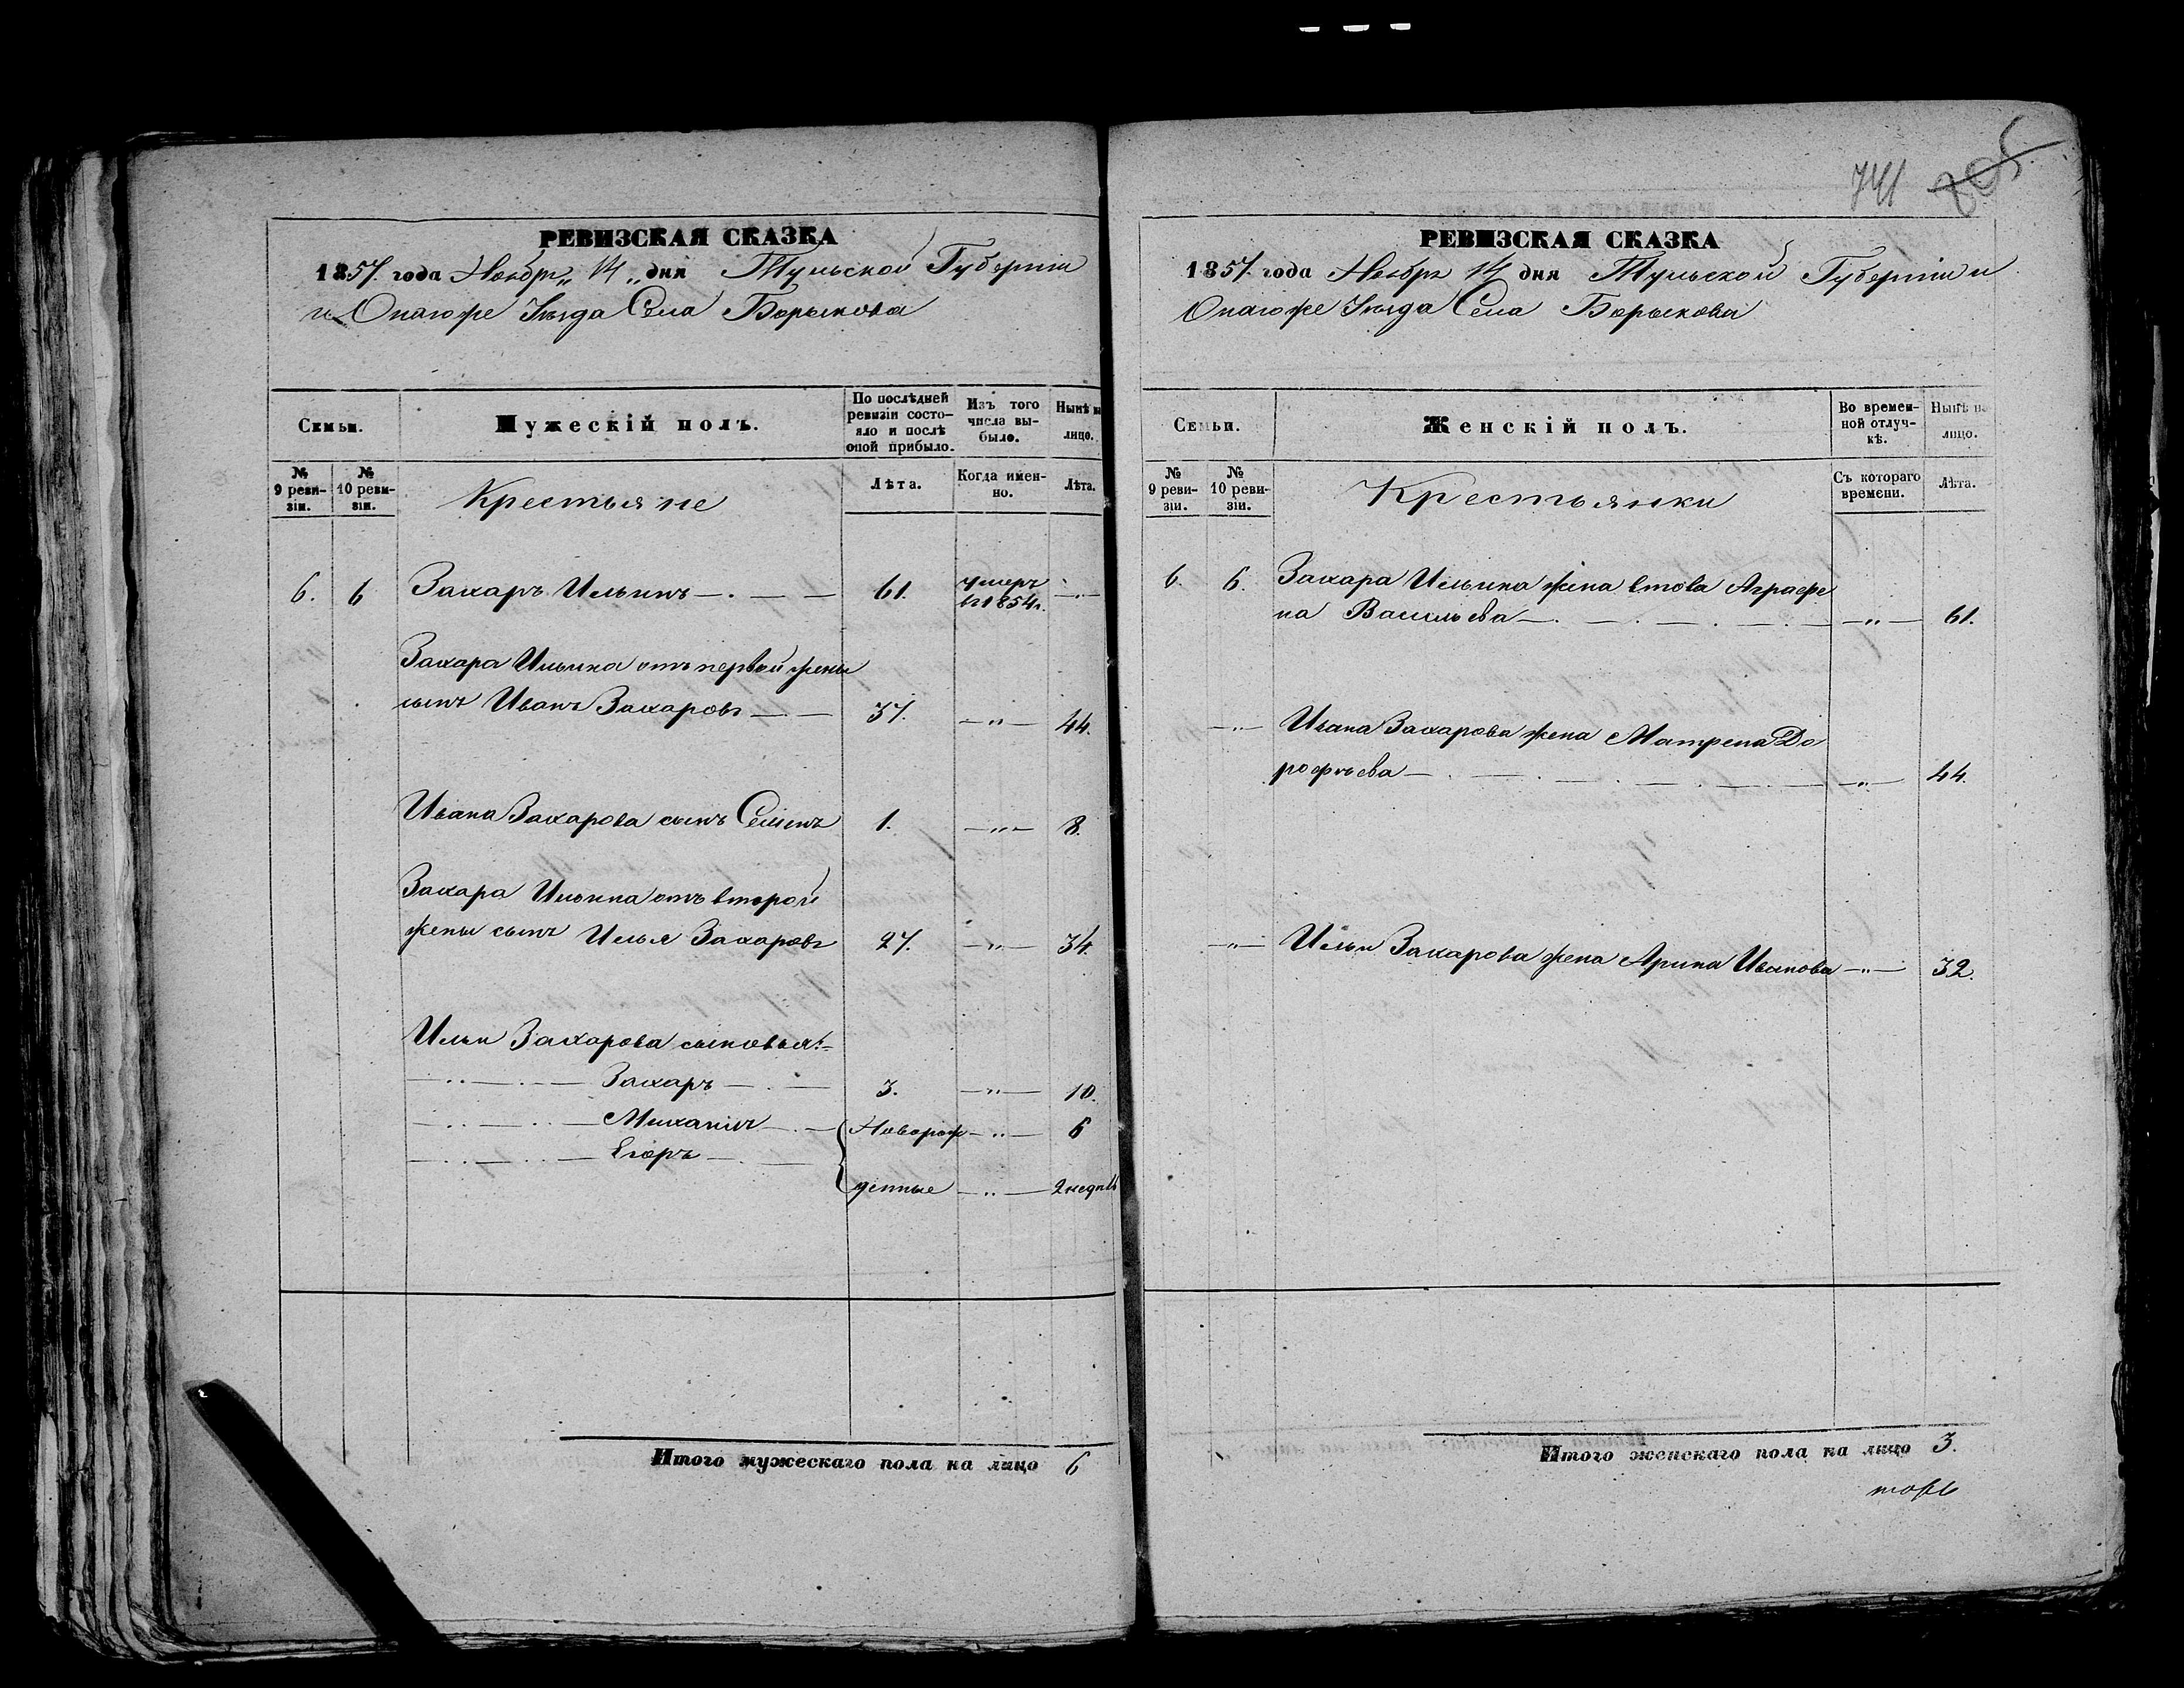 РЕВИЗСКАЯ СКАЗКА
1857. года Ноябр„ 14 „ дня Тульской Губерніи
и Онагоже Уѣзда Села Борыкова
Семьи.
Мужескій полъ.
По послѣдней ревизіи состояло и послѣ оной прибыло.
Изъ того числа выбыло.
Нынѣ на лицо.
№ 9 ревизіи.
№ 10 ревизіи.
Крестьяне
Лѣта.
Когда именно.
Лѣта.
6. 6 Захаръ Ильинъ — . — — 61. умеръ —..—
въ 1854г.
Захара Ильина отъ первой жены
сынъ Иванъ Захаровъ — — 37. —„— 44.
Ивана Захарова сынъ Семенъ 1. —„— 8.
Захара Ильина отъ второй
жены сынъ Илья Захаровъ 27. —„— 34.
Ильи Захарова сыновья:
— .. — . — Захаръ — . — 3. —„— 10.
— .. — .. — Михаилъ — . — Новорож —„— 6
— .. — .. — Егоръ — . —
денные —„— 2 недѣль
Итого мужескаго пола на лицо 6
741 805
РЕВИЗСКАЯ СКАЗКА
1857. года Ноябр 14 дня Тульской Губерніи и
Онагоже Уѣзда Села Борыкова
Семьи.
Женскій полъ.
Во временной отлучкѣ.
Нынѣ на лицо.
№ 9 ревизіи.
№ 10 ревизіи.
Крестьянки
Съ котораго времени.
Лѣта.
6. 6. Захара Ильина жена вдова Аграфе
на Васильева — . — . — . — —„— 61.
—„— Ивана Захарова жена Матрена До
рофѣева — . — . — . — —„— 44.
—„— Ильи Захарова жена Арина Иванова —„— 32.
Итого женскаго пола на лицо 3.